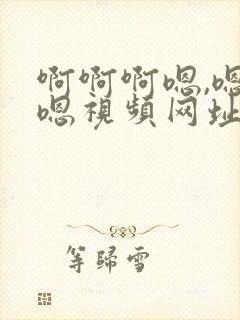 啊啊啊嗯,嗯
嗯視頻网址
等歸雪